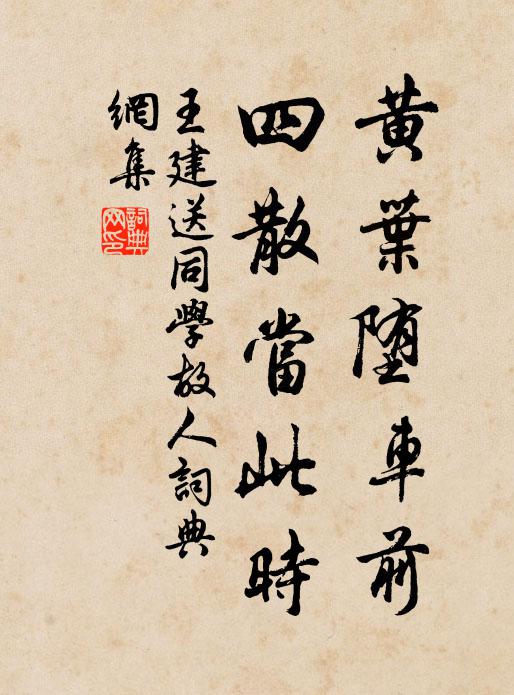 黃葉堕車前
四散當此時
王建送同學故人詞典
網集
詞典網印